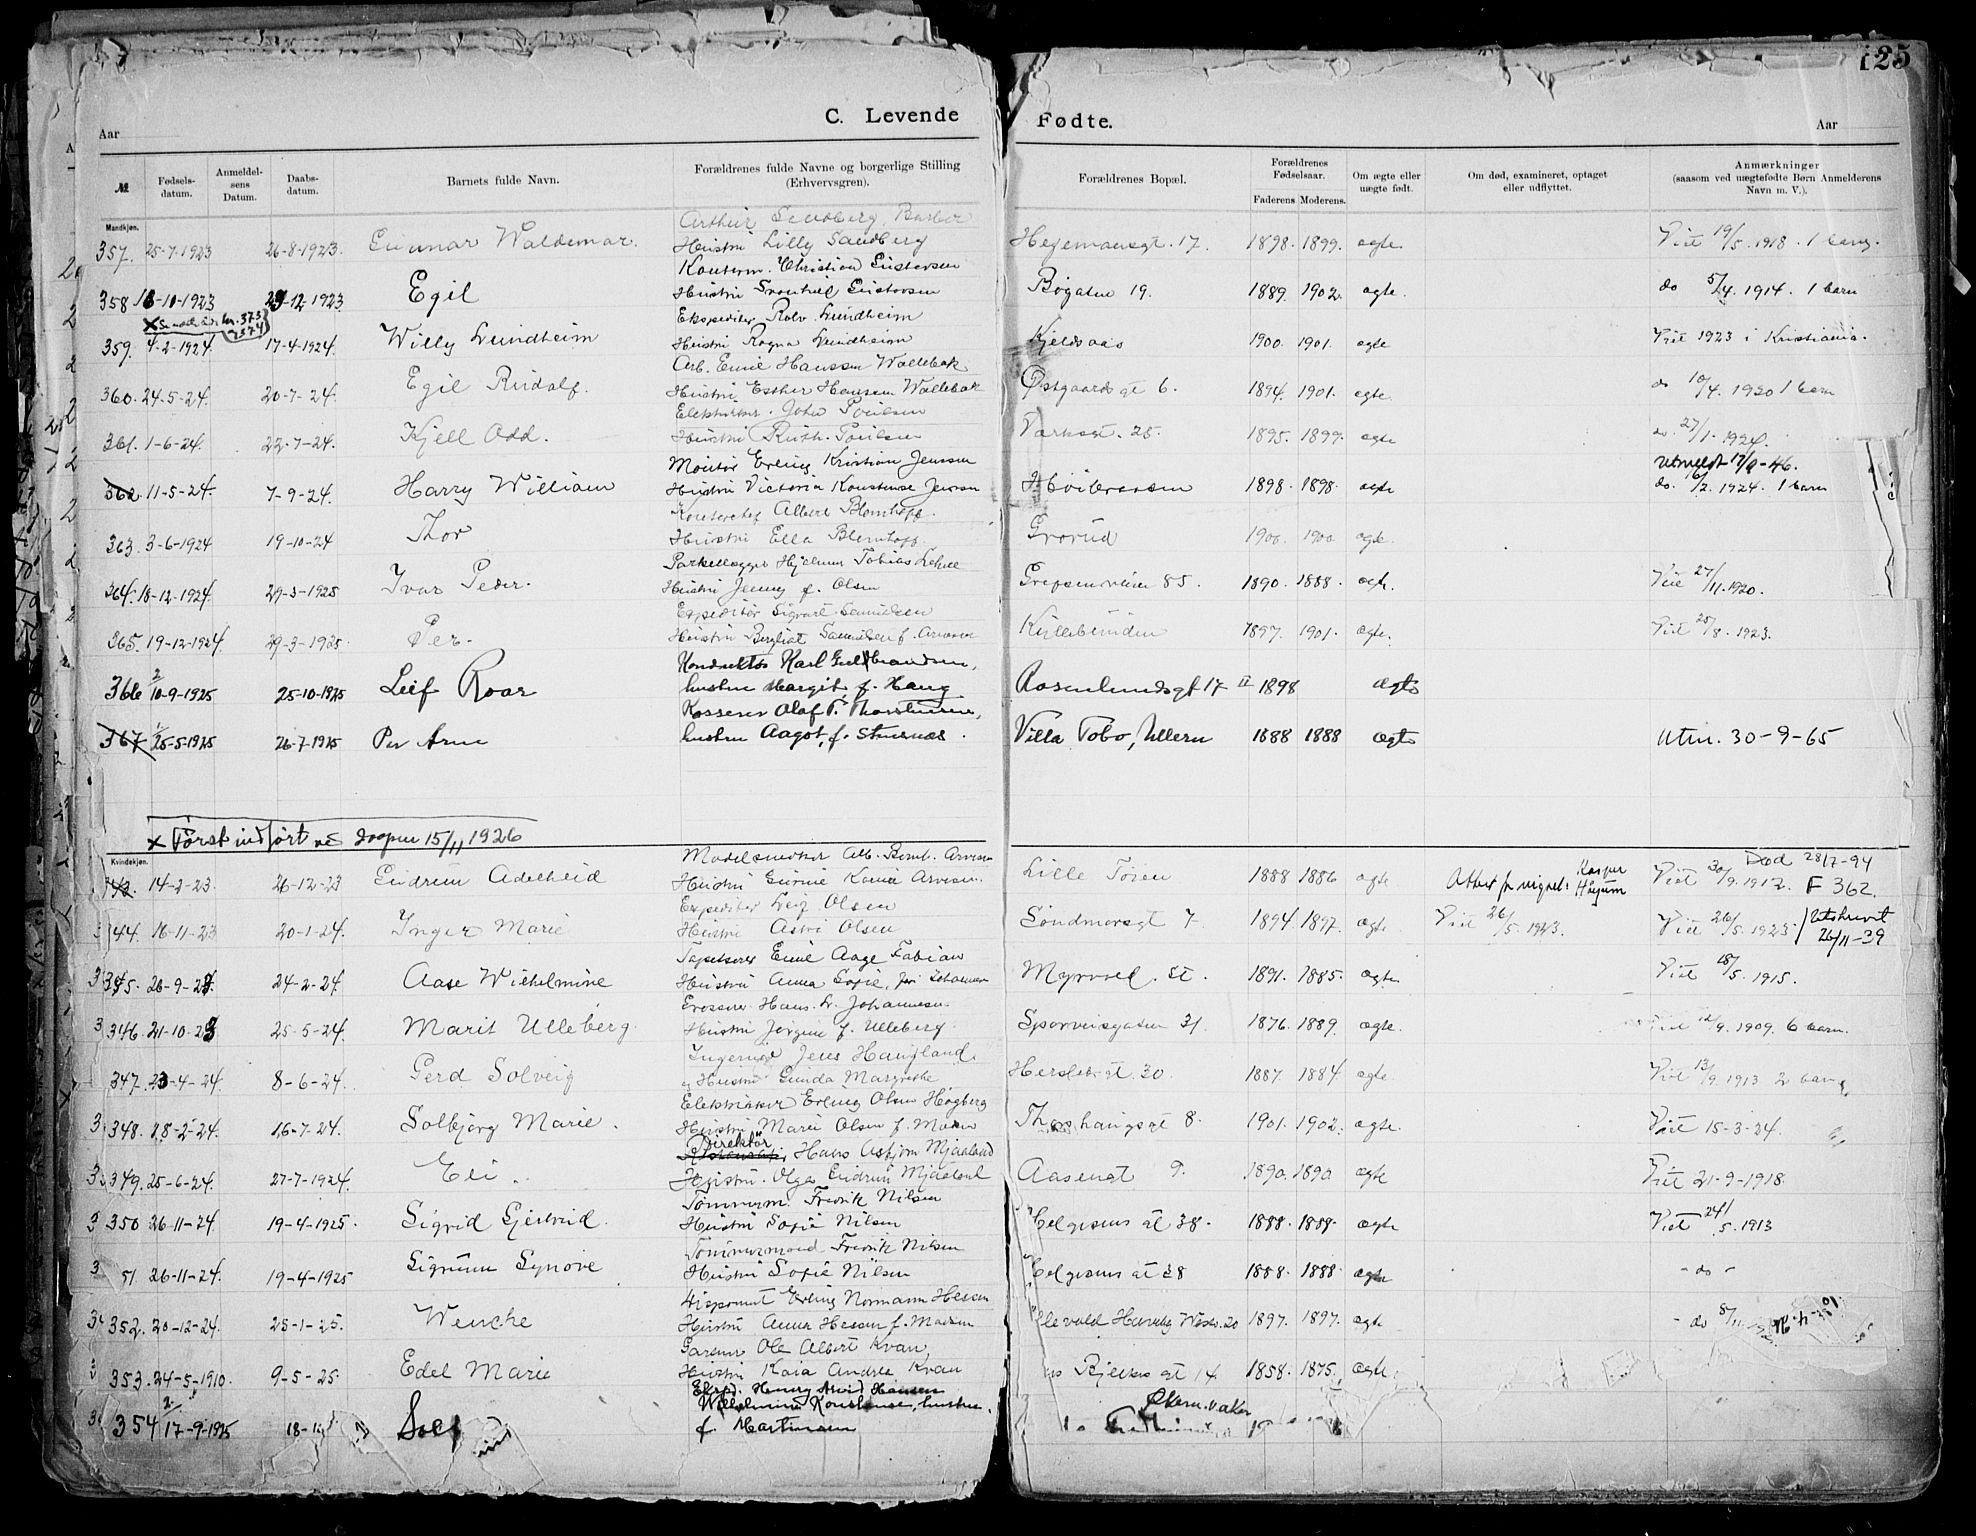 125
C. Levende Fødte.
Aar Aar
№ Fødsels-datum. Anmeldel-sens Datum. Daabs-datum. Barnets fulde Navn. Forældrenes fulde Navne og borgerlige Stilling (Erhvervsgren). Forældrenes Bopæl. Forældrenes Fødselsaar. Faderens Moderens. Om ægte eller uægte født. Om død, examineret, optaget eller udflyttet. Anmærkninger (saasom ved uægtefødte Børn Anmelderens Navn m. V.).
Mandkjøn.
Arthur Sandberg, Barber
357. 25-7-1923 26-8-1923. Gunnar Waldemar. Hustru Lilly Sandberg Hegermansgt. 17. 1898. 1899. ægte. Viet 19/5. 1918. 1 barn.
Kontorm. Christian Gustavsen
358 16-10-1923 29-12-1923 Egil Hustru Gustavsen Bogaten 19. 1889. 1902. ægte. do 5/4. 1914. 1 barn
Ekspeditør Rolv Lundheim
359. 4-2-1924. 17-4-1924. Willy Lundheim Hustru Ragna Lundheim Kjeldsaas 1900. 1901. ægte Viet 1923 i Kristiania.
Arb. Emil Hanssen Wallebak
360. 24-5-24. 20-7-24. Egil Rudolf. Hustru Esther Hanssen Wallebak Østgaards gt 6. 1894. 1901. ægte. do 10/4. 1920 1 barn
Elektriker. John Poulsen
361. 1-6-24. 22-7-24. Kjell Odd. Hustru Ruth Poulsen Parkgt. 25. 1895. 1899. ægte do. 27/1. 1924.
Montør Erling Kristian Jenssen Utmeldt 17/9-46.
362 11-5-24. 7-9-24. Harry William Hustru Victoria Konstanse Jenssen 1898. 1898. ægte do. 16/2. 1924. 1 barn
Kontorchef Albert Blomhoff.
363. 3-6-1924 19-10-24 Thor Hustru Ella Blomhoff. Grorud 1900. 1900 ægte.
Hjalmar Tobias
364. 18-12-1924. 29-3-1925 Ivar Peder. Hustru Jenny f. Olsen Grefsenveien 85. 1890. 1888. ægte. Viet 27/11. 1920.
Expeditør Sigvart Samuelsen
365. 19-12-1924. 29-3-1925. Per. Hustru Bergliot Samuelsen f. Arnesen 1897. 1901. ægte. Viet 25/8. 1923.
Konduktør Karl Guldbrandsen,
366 10-9-1925 25-10-1925 Leif Roar hustru Margit, f. Haug. Rosenlundsgt 17 II 1898 ægte
Kasserer Olaf T. Thorstensen,
367 25-5-1925 26-7-1925 Per Arne hustru Aagot, f. Villa Tobo, Ullern 1888 1888 ægte Utm. 30-9-65
x Først indført ved daapen 15/11 1926
Kvindekjøn.
Modelsnedker Alb. Bernh. Arvesen Død 28/2-94
14-2-23. 26-12-23 Gudrun Adelheid Hustru Gunnie Arvesen. Lille Tøien 1888 1886 ægte Attest for vigsel: Kasper Viet 30/9. 1912. F 362
Expeditør Leif Olsen
344. 16-11-23 20-1-24. Inger Marie Hustru Astri Olsen Søndmørsgt 7 1894. 1897. ægte. Viet 26/5. 1923. Viet 26/5. 1923. Utskrevet 26/11-39
Tapetserer Emil Aage Fabian
345. 26-9-23. 24-2-24. Aase Wilhelmine Hustru Anna Sofie, Myrvold. st. 1891. 1885. ægte. Viet 18/5. 1915.
Hans L. Johannesen
346. 21-10-23 25-5-24. Marit Ulleberg. Hustru Jørgine f. Ulleberg. Sporveisgaten 31. 1876. 1889. ægte. Viet 12/9. 1909. 6 barn.
Ingeniør Jens Haugland.
347. 23-4-24. 8-6-24. Gerd Solveig Hustru Gunda Margrethe Herslebs gt. 30. 1887. 1884. ægte Viet 13/9. 1913 2 barn
Elektriker Erling Olsen Høgberg
348. 18-2-24. 16-7-24. Solbjørg Marie. Hustru Marie Olsen f. 8. 1901. 1902. ægte. Viet 15-3-24.
Direktør Hans Asbjørn Mjaaland
349. 25-6-24. 27-7-1924. Eli. Hustru. Olga Gudrun Mjaaland Aasengt 9. 1890. 1890. ægte Viet 21-9-1918.
Tømmerm. Fredrik Nilsen
350 26-11-24. 19-4-1925. Sigrid Gjertrud. Hustru Sofie Nilsen Helgesens gt 38. 1888. 1888. ægte Viet 24/5. 1913
Tømmermand Fredrik Nilsen
51. 26-11-24. 19-4-1925 Sigrun Synøve Hustru Sofie Nilsen Helgesens gt 38 1888. 1888. ægte - do -
Disponent Erling Normann Hessen
352. 20-12-24. 25-1-25. Wenche Hustru Anna Hessen f. Madsen 20 1897. 1897. ægte - do 8/11.
Ole Albert Kvan,
353. 24-5-1910. 9-5-25. Edel Marie Hustru Kaia Andrea Kvan Bjelkes gt 14 1858. 1875. ægte.
Eksp. Henry Arvid Hansen
Wilhelmine Konstanse, hustru.
354 17-9-1925 f. Martinsen